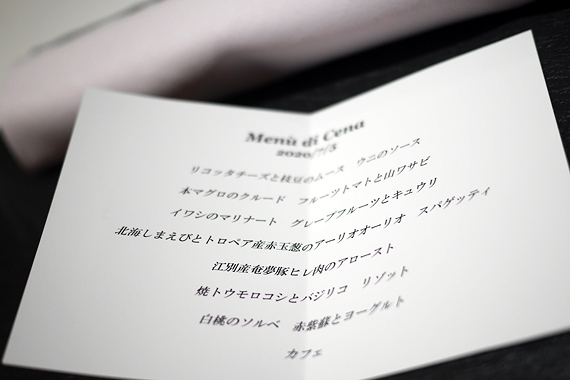 Menù di Cena
2020/7/5
リコッタチーズと枝豆のムース　ウニのソース
本マグロのクルード　フルーツトマトと山ワサビ
イワシのマリナート　グレープフルーツとキュウリ
北海しまえびとトロペア産赤玉葱のアーリオオーリオ　スパゲッティ
江別産奄夢豚ヒレ肉のアロースト
焼トウモロコシとバジリコ　リゾット
白桃のソルベ　赤紫蘇とヨーグルト
カフェ